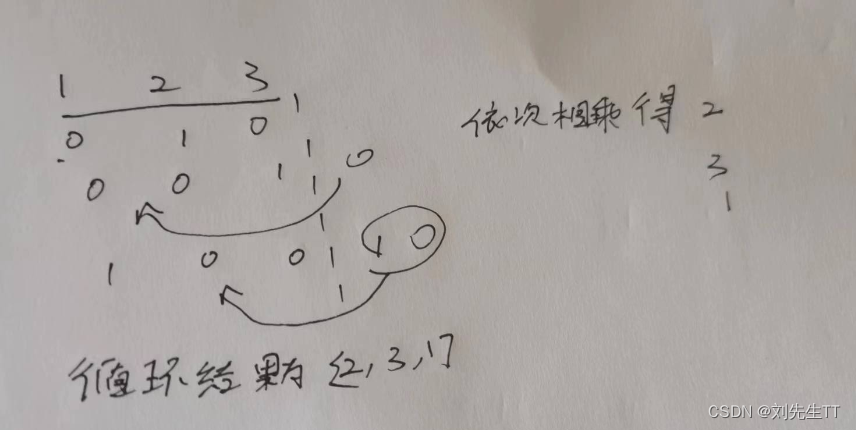 1 2 3
0 1 0
0 0 1 0
1 0 0 1 0
依次相乘得 2
3
1
循环结果为 {2,3,1}
CSDN @刘先生TT